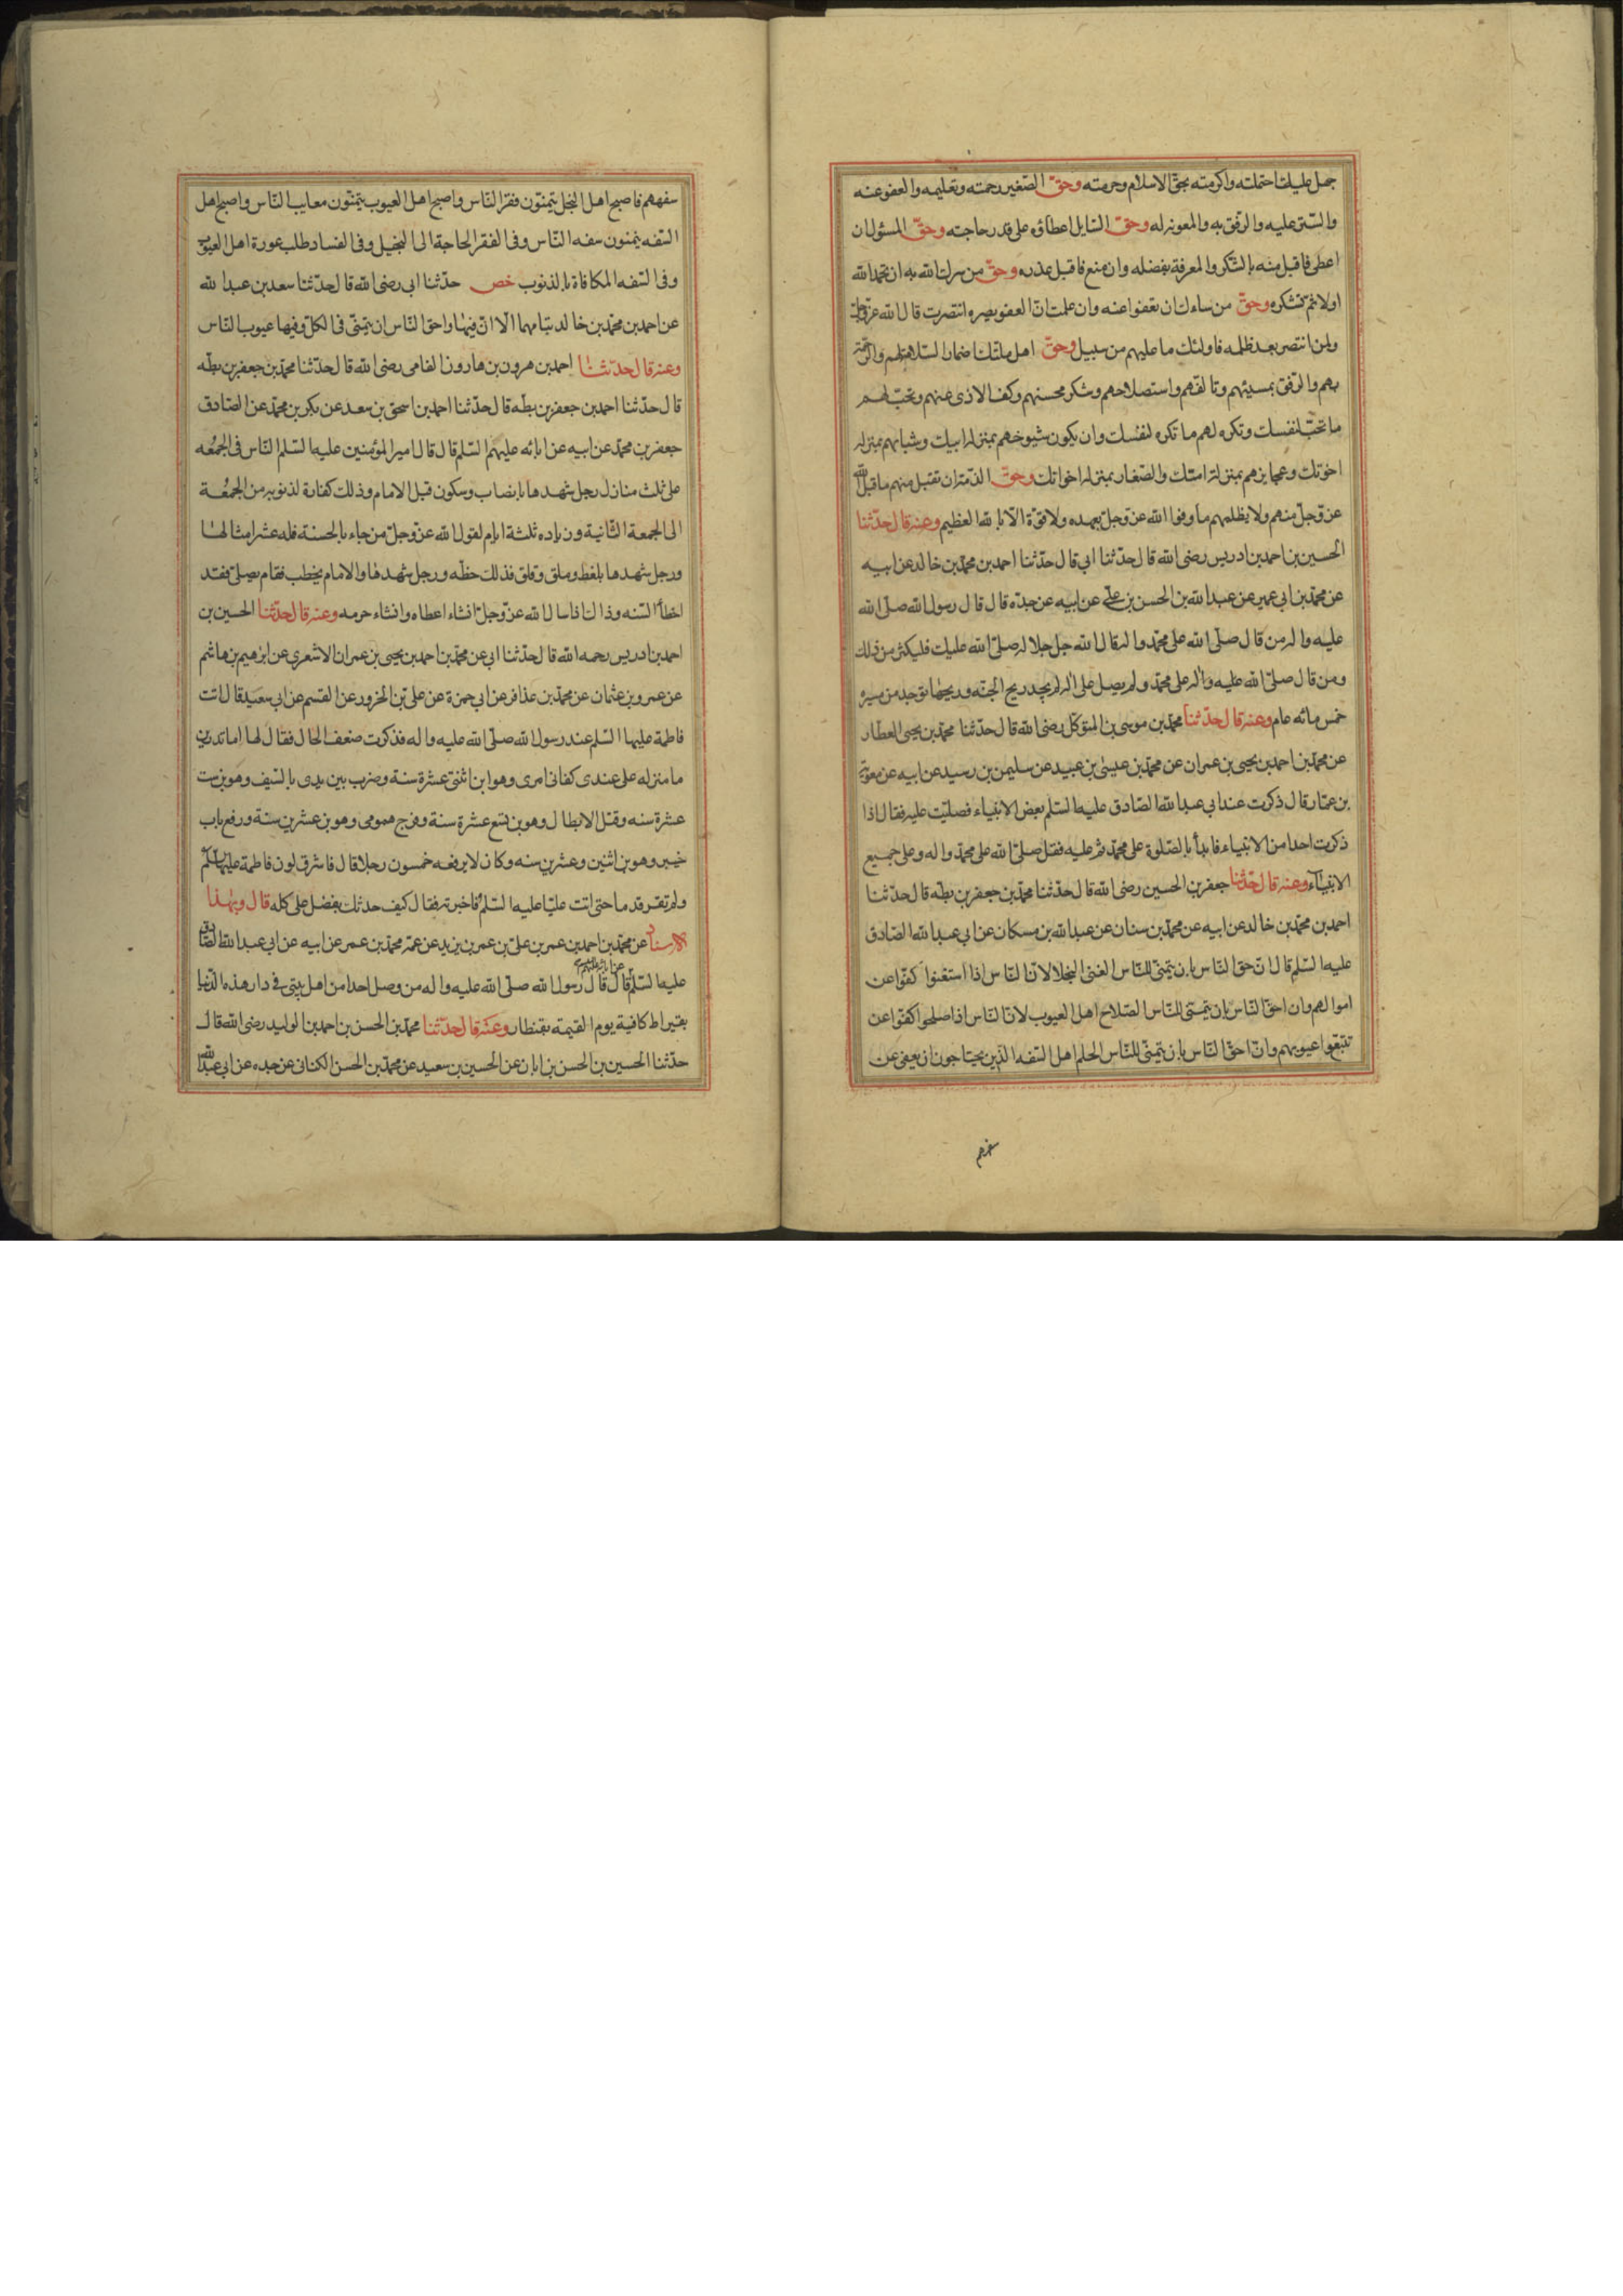 جهل عليك احتملته واكرمته بحق الاسلام وحرمته وحق الصغير رحمته وتعليمه والعفو عنه
والستر عليه والرفق به والمعونه له وحق السايل اعطاؤه على قدر حاجته وحق المسئول ان
اعطى فاقبل منه بالشكر والمعرفة بفضله وان منع فاقبل عذره وحق من سرك الله به ان تحمد الله
اولا ثم تشكره وحق من ساءك ان تعفوا عنه وان علمت ان العفو يضره انتصرت قال الله عز وجل
ولمن انتصر بعد ظلمه فاولئك ما عليهم من سبيل وحق اهل ملتك اضمار السلامة لهم والرحمة
بهم والرفق بمسيئهم وتالفهم واستصلاحهم وشكر محسنهم وكف الاذى عنهم وتحب لهم
ما تحب لنفسك وتكره لهم ما تكره لنفسك وان يكون شيوخهم بمنزلة ابيك وشبانهم بمنزله
اخوتك وعجايزهم بمنزلة امتك والصغار بمنزله اخواتك وحق الذمة ان تقبل منهم ما قبل الله
عز وجل منهم ولا يظلمهم ما وفوا الله عز وجل بعهده ولا قوة الا بالله العظيم وعنه قال حدثنا
الحسين بن احمد بن ادريس رضى الله قال حدثنا ابي قال حدثنا احمد بن محمد بن خالد عن ابيه
عن محمد بن ابي عمير عن عبد الله بن الحسن بن علي عن ابيه عن جده قال قال رسول الله صلى الله
عليه واله من قال صلى الله على محمد واله قال الله جل جلاله صلى الله عليك فليكثر من ذلك
ومن قال صلى الله عليه واله على محمد ولم يصل على اله لم يجد ريح الجنة وريحها توجد من مسيره
خمس مائه عام وعنه قال حدثنا محمد بن موسى بن المتوكل رضى الله قال حدثنا محمد بن يحيى العطار
عن محمد بن احمد بن يحيى بن عمران عن محمد بن عيسى بن عبيد عن سليمن بن رسيد عن ابيه عن معوية
بن عمار قال ذكرت عند ابي عبد الله الصادق عليه السلم بعض الانبياء فصليت عليه فقال اذا
ذكرت احدا من الانبياء فابدأ بالصلوة على محمد ثم عليه فقل صلى الله على محمد واله وعلى جميع
الانبياء وعنه قال حدثنا جعفر بن الحسين رضى الله قال حدثنا محمد بن جعفر بن بطه قال حدثنا
احمد بن محمد بن خالد عن ابيه عن محمد بن سنان عن عبد الله بن مسكان عن ابي عبد الله الصادق
عليه السلم قال ان حق الناس بان يتمنى للناس الغنى البخلا لان الناس اذا استغنوا كفوا عن
اموالهم وان احق الناس بان يتمنى للناس الصلاح اهل العيوب لان الناس اذا صلحوا كفوا عن
تتبعوا عيوبهم وان احق الناس بان يتمنى للناس الحلم اهل السفه الذين يحتاجون ان يعفى عن
سفههم
سفههم فاصبح اهل البخل يتمنون فقر الناس واصبح اهل العيوب يتمنون معايب الناس واصبح اهل
السفه يتمنون سفه الناس وفى الفقر الحاجة الى البخيل وفى الفساد طلب عورة اهل العيوب
وفى السفه المكافاة بالذنوب خص حدثنا ابى رضى الله قال حدثنا سعد بن عبد الله
عن احمد بن محمد بن خالد الا ان فيها واحق الناس ان يتمنى فى الكل وفيها عيوب الناس
وعنه قال حدثنا احمد بن هرون بن هارون الفامى رضى الله قال حدثنا محمد بن جعفر بن بطه
قال حدثنا احمد بن جعفر بن بطه قال حدثنا احمد بن اسحق بن سعد عن بكر بن محمد عن الصادق
جعفر بن محمد عن ابيه عن ابائه عليهم السلم قال قال امير المؤمنين عليه السلم الناس فى الجمعه
على ثلث منازل رجل شهدها بانصاب وسكون قبل الامام وذلك كفارة لذنوبه من الجمعة
الى الجمعة الثانية وزياده ثلثة ايام لقول الله عز وجل من جاء بالحسنة فله عشر امثالها
ورجل شهدها بلغط وملق وقلق فذلك حظه ورجل شهدها والامام يخطب فقام يصلى فقد
اخطأ السنه وذاك اذا سال الله عز وجل انشاء اعطاه وانشاء حرمه وعنه قال حدثنا الحسين بن
احمد بن ادريس رحمه الله قال حدثنا ابي عن محمد بن احمد بن يحيى بن عمران الاشعري عن ابرهيم بن هاشم
عن عمرو بن عثمان عن محمد بن عذافر عن ابي حمزة عن على بن الحزور عن القسم عن ابي سعيد قال اتت
فاطمة عليها السلم عند رسول الله صلى الله عليه واله فذكرت ضعف الحال فقال لها اما تدرين
ما منزله على عندى كفانى امرى وهو ابن اثنتى عشرة سنة وضرب بين يدى بالسيف وهو بن ست
عشرة سنه وقتل الابطال وهو بن تسع عشرة سنة وفرج همومى وهو بن عشرين سنة ورفع باب
خيبر وهو بن اثنين وعشرين سنه وكان لا يرفعه خمسون رجلا قال فاشرق لون فاطمة عليها السلم
ولم تقر قدماها حتى اتت عليا عليه السلم فاخبرته فقال كيف حدثك بفضل على كله قال وبهذا
الاسناد عن محمد بن احمد بن عمر بن على بن عمر بن يزيد عن عمه محمد بن عمر عن ابيه عن ابي عبد الله الصادق
عليه السلم قال قال رسول الله صلى الله عليه واله من وصل احدا من اهل بيتى فى دار هذه الدنيا
بقيراط كافيته يوم القيمة بقنطار وعنه قال حدثنا محمد بن الحسن بن احمد بن الوليد رضى الله قال
حدثنا الحسين بن الحسن بن ابان عن الحسين بن سعيد عن محمد بن الحسن الكنانى عن جده عن ابي عبد الله